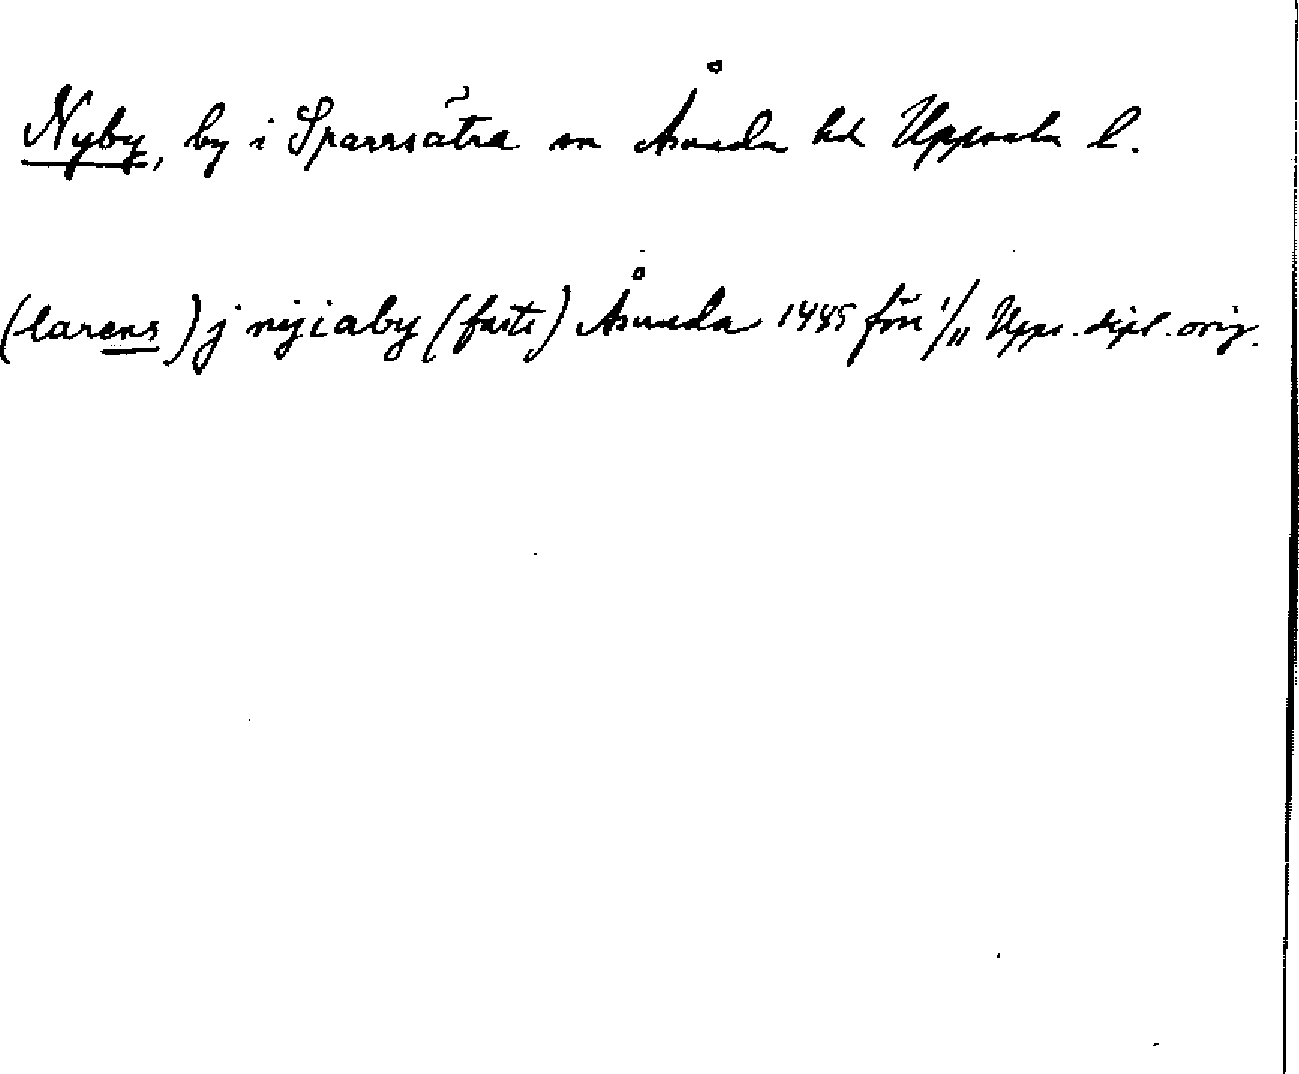 Nyby, by i Sparrsätra sn Åsunda hd Uppsala l.
(larens) j nyiaby (faste) Åsunda 1485 före 1/11 Upps. dipl. orig.